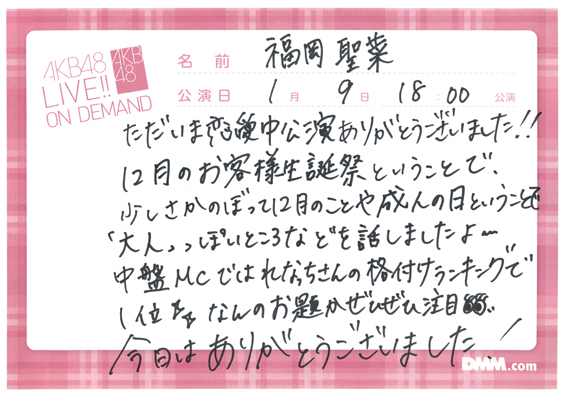 AKB48
LIVE!!
ON DEMAND
AKB
48
名前 福岡聖菜
公演日 1月 9日 18:00 公演
ただいま恋愛中公演ありがとうございました!!
12月のお客様生誕祭ということで、
少しさかのぼって12月のことや成人の日ということで
「大人っ」っぽいところなどを話しましたよ〜
中盤MCではれなっちさんの格付けランキングで
1位 なんのお題かぜひぜひ注目
今日はありがとうございました!
DMM.com